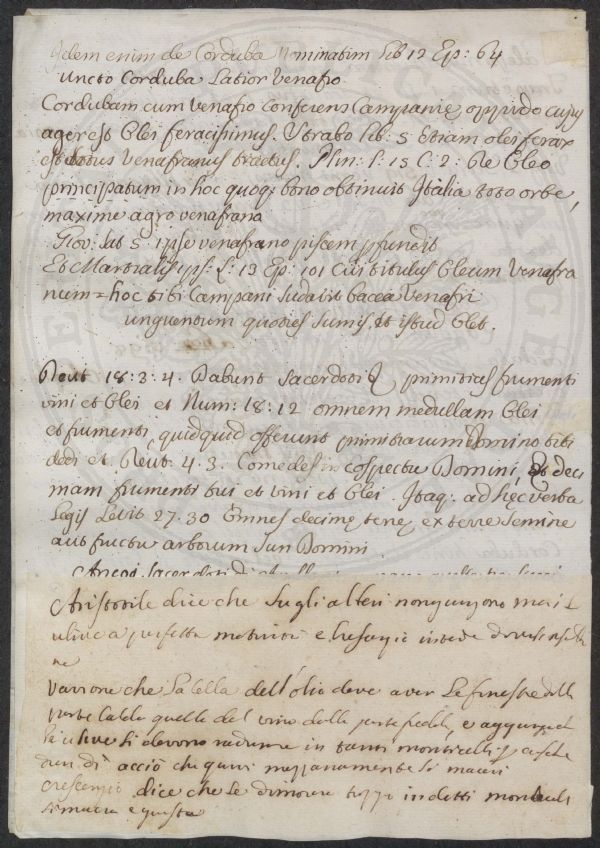 Idem enim de Corduba nominatim lib 12 Ep: 64
uncto Corduba latior Venafro
Cordubam cum Venafro conferens Campanie oppido cuius
ager est olei feracissimus. Strabo lib: 5 etiam olei ferax
est totus Venafranus tractus. Plin: l: 15 C: 2: de Oleo
principatum in hoc quoq: bono obtinuit Italia toto orbe,
maxime agro venafrano
Giov: Sat 5 ipse venafrano piscem pfundit
Et Martialis ips: L: 13 Ep: 101 cui titulus Oleum Venafra
num = hoc tibi Campani sudavit bacca Venafri
unguentum quoties sumis et istud olet.
Deut 18: 3: 4. Dabunt sacerdoti primitias frumenti
vini et Olei et Num: 18: 12 omnem medullam Olei
et frumenti, quidquid offerunt primitiarum Domino tibi
dedi et Deut. 4. 3. Comedes in cospectu Domini, et deci
mam frumenti tui et vini et Olei. Itaq: ad hęc verba
Legis Levit 27. 30 Omnes decime terre ex terre semine
aut fructu arborum sun Domini.
Ancor sacerdoti di
Aristotile dice che Sugli alberi non giungono mai l
ulive a perfetta maturità e
ne
Varrone che la cella dell'olio deve aver le finestre dalla
parte calda quelle del vino dalla parte fredda, e aggiunge ch
le ulive si devono radunar in tanti monticelli p
dun dì acciò che quivi mezzanamente si maceri
Crescenzio dice che se dimorar troppo in detti monticelli
si macera e guasta